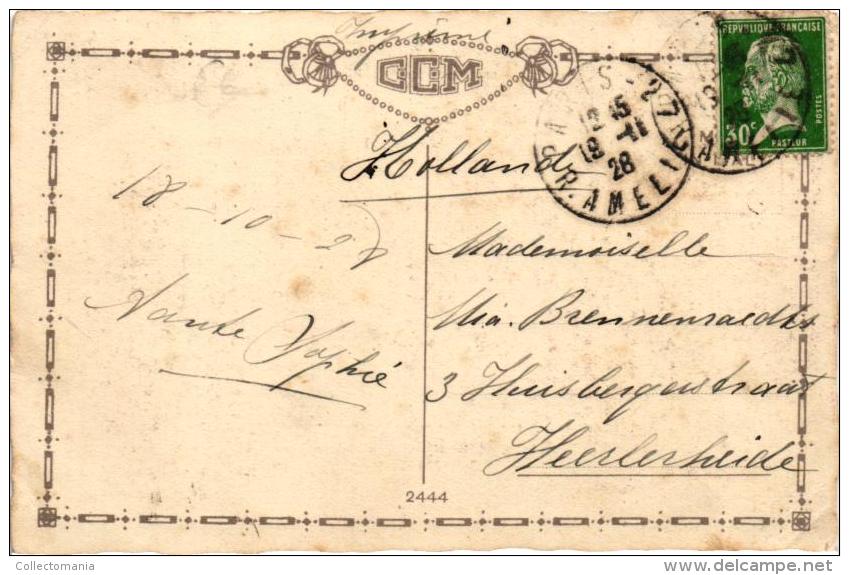 Imprimé
C.C.M
REPVBLIQVE FRANÇAISE
30c
POSTES
PASTEUR
PARIS-27
12 45
19 -11
28
R. AMELI
Hollande
18-10-28
Tante Sophie
Mademoiselle
Mia. Brennenraedts
3 Huisbergerstraat
Heerlerheide
2444
Collectomania
www.delcampe.net